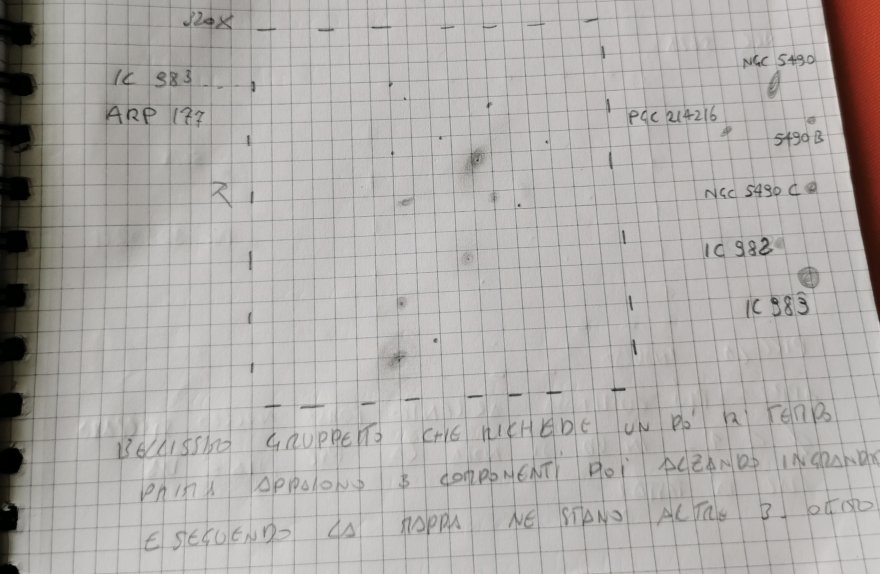 320X
IC 983
ARP 177
R
NGC 5490
PGC 214216
5490 B
NGC 5490 C
IC 982
IC 983
BELLISSIMO GRUPPETTO CHE RICHIEDE UN PÒ DI TEMPO
PRIMA APPAIONO 3 COMPONENTI POI ALZANDO INGRANDI
E SEGUENDO LA MAPPA NE STANO ALTRE 3.